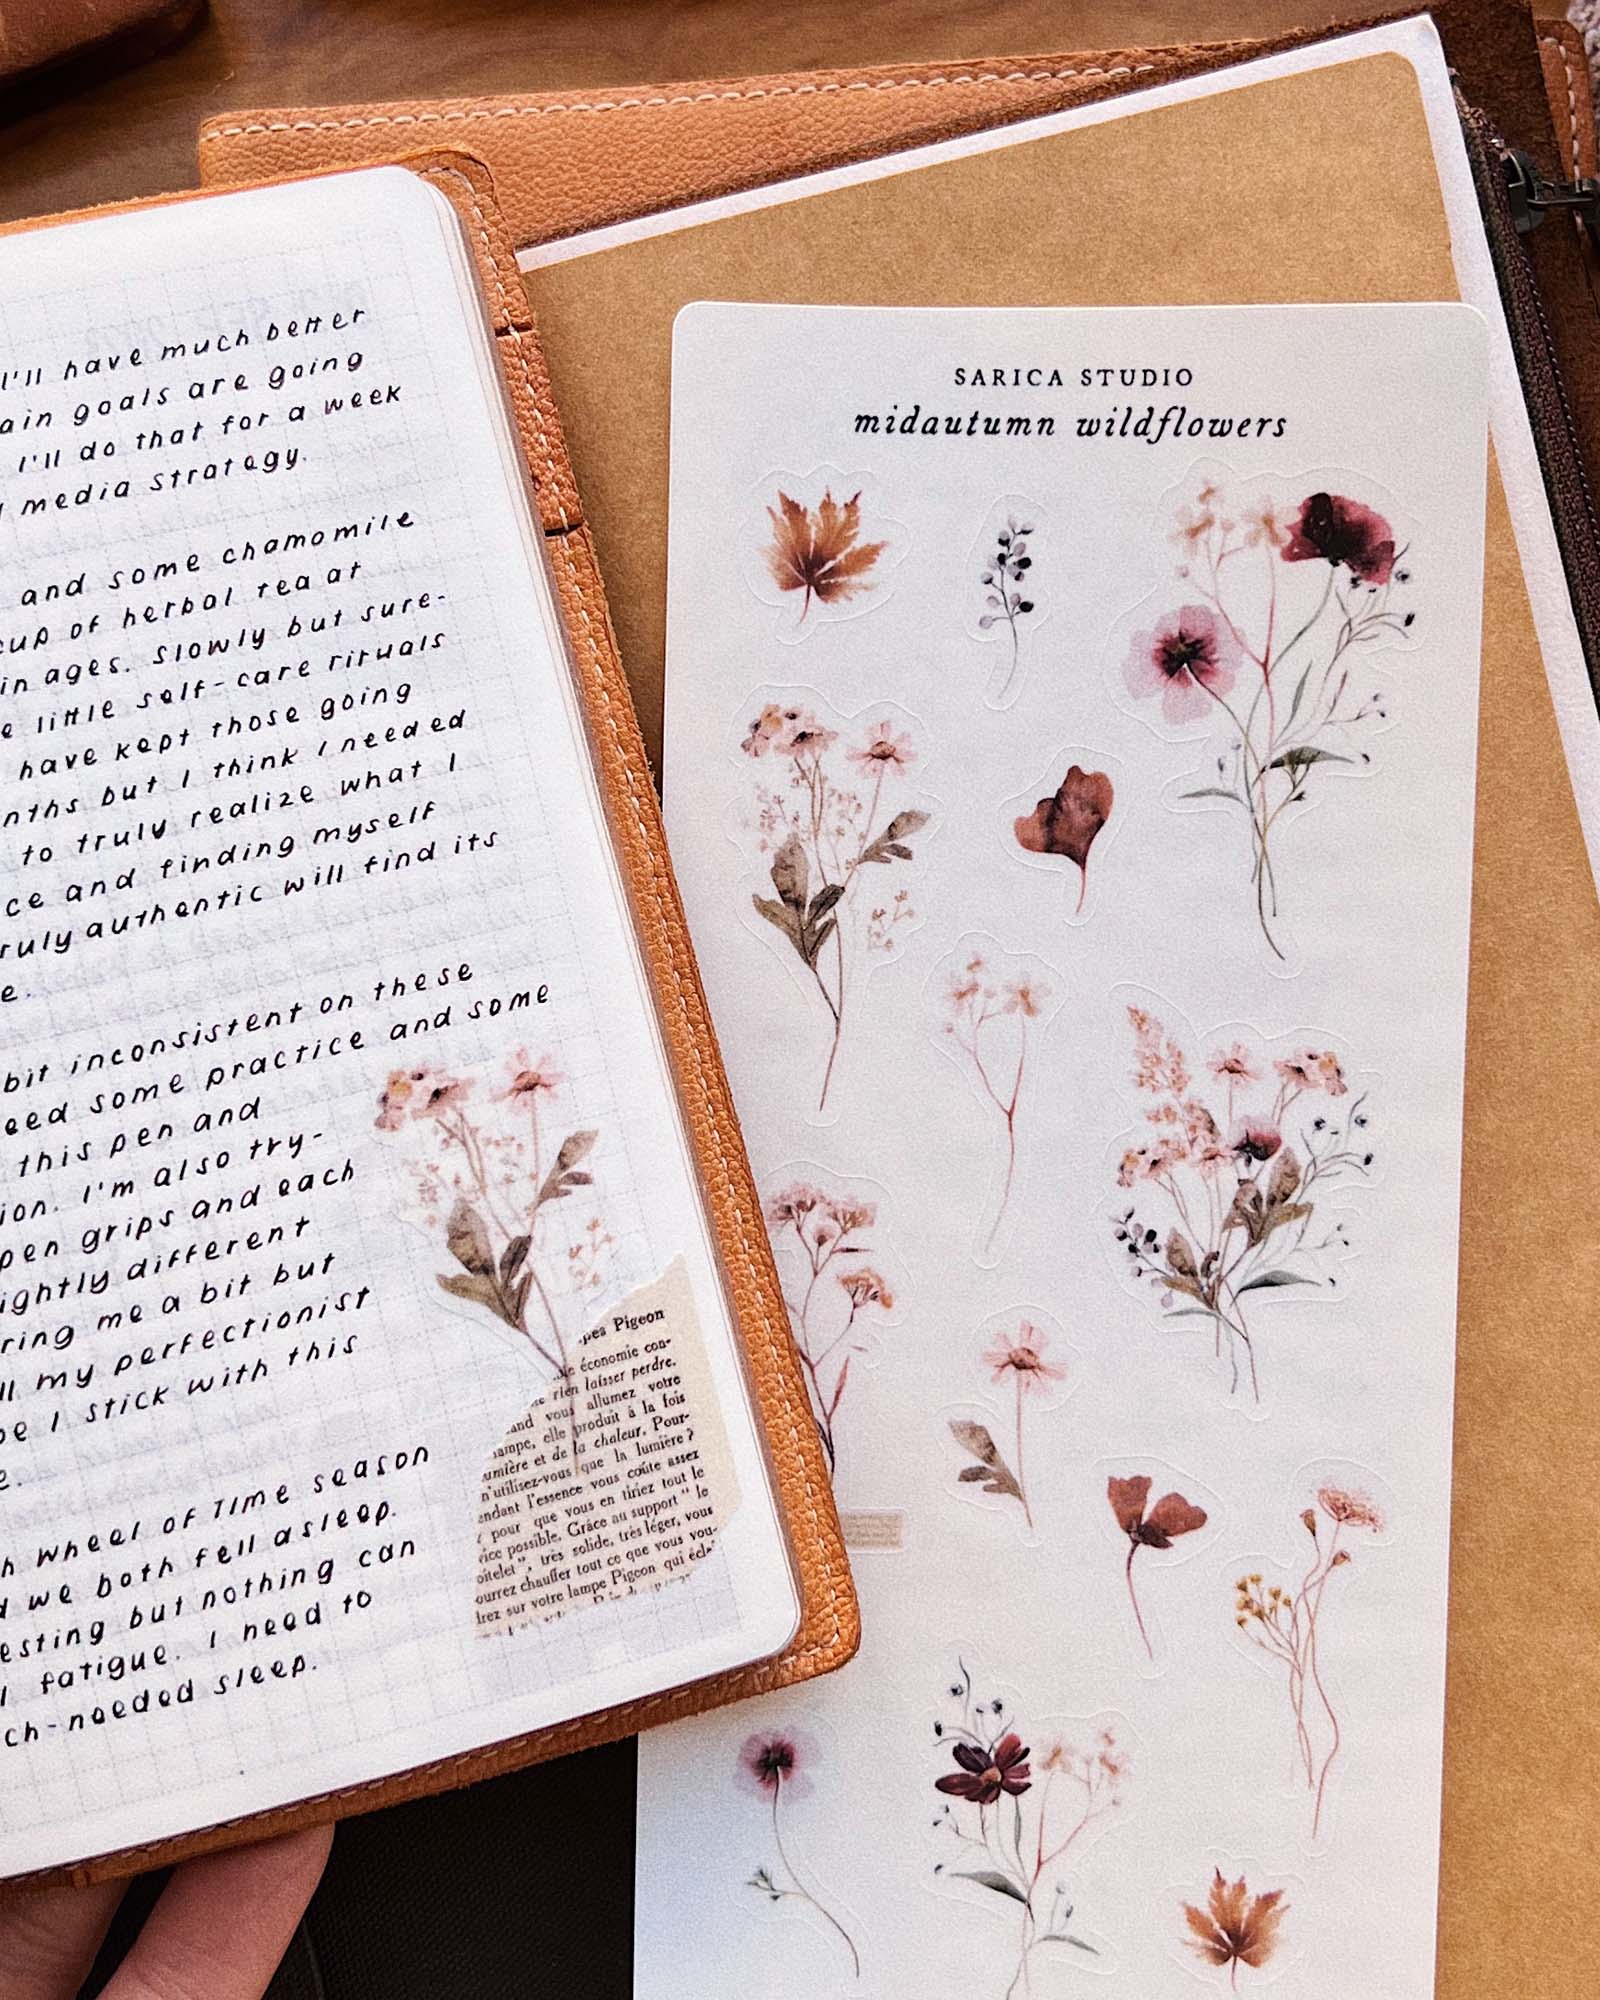 I'll have much better
ain goals are going
I'll do that for a week
media strategy.
and some chamomile
cup of herbal tea at
in ages. Slowly but sure-
e little self-care rituals
have kept those going
nths but I think I needed
to truly realize what I
ce and finding myself
ruly authentic will find its
e.
bit inconsistent on these
eed some practice and some
this pen and
ion. I'm also try-
pen grips and each
ightly different
ring me a bit but
ll my perfectionist
pe I stick with this
e.
h Wheel of Time season
d we both fell asleep.
esting but nothing can
l fatigue. I need to
ch-needed sleep.
pes Pigeon
économie con-
rien laisser perdre.
and vous allumez votre
lampe, elle produit à la fois
umière et de la chaleur. Pour-
n'utilisez-vous que la lumière ?
endant l'essence vous coûte assez
pour que vous en tiriez tout le
vice possible. Grâce au support " le
oitelet ", très solide, très léger, vous
ourrez chauffer tout ce que vous vou-
drez sur votre lampe Pigeon qui écl
SARICA STUDIO
midautumn wildflowers